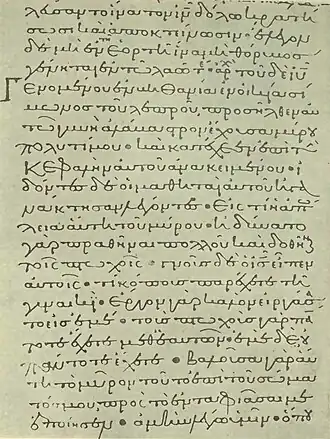 λεύσαντο ἵνα τὸν ἰν δόλω κρατή
σωσι καὶ ἀποκτείνωσιν· ἔλεγον
δὲ μὴ ἐν τῆ ἑορτῆ ἵνα μὴ θόρυβος
γένηται ἐν τῶ λαῶ· τοῦ δὲ ἰυ
Γενομένου ἐν βηθανία ἐν οἰκία σί
μωνος τοῦ λεπροῦ, προσῆλθεν αὐ
τῶ γυνὴ ἀλάβαστρον ἔχουσα μύρου
πολυτίμου· καὶ κατέχεεν ἐπὶ τὴν
κεφαλὴν αὐτοῦ ἀνακειμένου· ἰ
δόντες δὲ οἱ μαθηταὶ αὐτοῦ ἠγα
νάκτησαν λέγοντες· εἰς τί ἡ ἀπώ
λεια αὕτη τοῦ μύρου· ἠδύνατο
γὰρ πραθῆναι πολλοῦ καὶ δοθῆναι
τοῖς πτωχοῖς· γνοὺς δὲ ὁ ἰς εἶπεν
αὐτοῖς· τί κόπους παρέχετε τῆ
γυναικί· ἔργον γὰρ καλὸν εἰργάσα
το εἰς ἐμέ· τοὺς πτωχοὺς γὰρ πάν
τοτε ἔχετε μεθ' ἑαυτῶν· ἐμὲ δὲ οὐ
πάντοτε ἔχετε· βαλοῦσα γὰρ αὕ
τη τὸ μύρον τοῦτο ἐπὶ τοῦ σώμα
τός μου, πρὸς τὸ ἐνταφιάσαι με
ἐποίησεν· ἀμὴν λέγω ὑμῖν· ὅπου